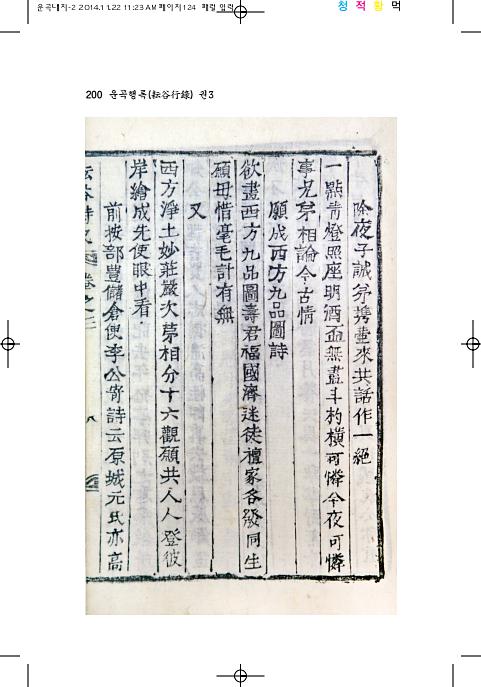 운곡대지-2 2014.11.22 11:23 AM 페이지124 패럴 일럭
청 적 황 먹
200 운곡행록(耘谷行錄) 권3
除夜子誠弟携壷來共話作一絶
一點靑燈照座明酒盃無盡斗杓橫可憐今夜可憐
事兄弟相論今古情
願成西方九品圖詩
欲盡西方九品圖壽君福國濟迷徒檀家各發同生
願毋惜毫毛計有無
又
西方淨土妙莊嚴次苐相分十六觀願共人人登彼
岸繪成先使眼中看
前按部豊儲倉使李公寄詩云原城元氏亦高
卷之三
八